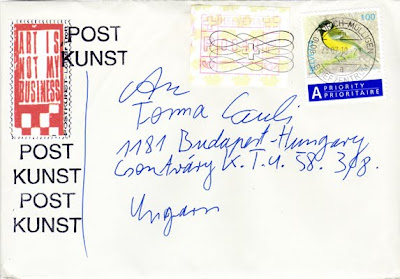 ART IS
NOT MY
BUSINESS
POST
KUNST
100
A PRIORITY
PRIORITAIRE
An
Torma Cauli
1181 Budapest-Hungary
Csontváry K. T. U. 58. 3/8.
Ungarn
POST
KUNST
POST
KUNST